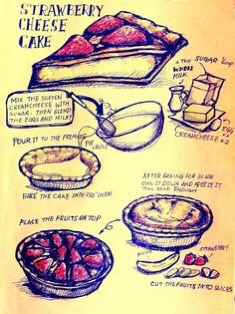 STRAWBERRY
CHEESE
CAKE
SUGAR
WHOLE
MILK
MIX THE SOFTEN
CREAMCHEESE WITH
SUGAR. THEN BLEND
THE EGG AND MILK!
CREAMCHEESE x 2
EGG
POUR IT TO THE PREMADE
PIE
BAKE THE CAKE INTO
OVEN
AFTER BAKING FOR 30 MIN
COOL IT DOWN AND FREEZE IT
PLACE THE FRUITS ON TOP
STRAWBERRY
CUT THE FRUITS INTO SLICES